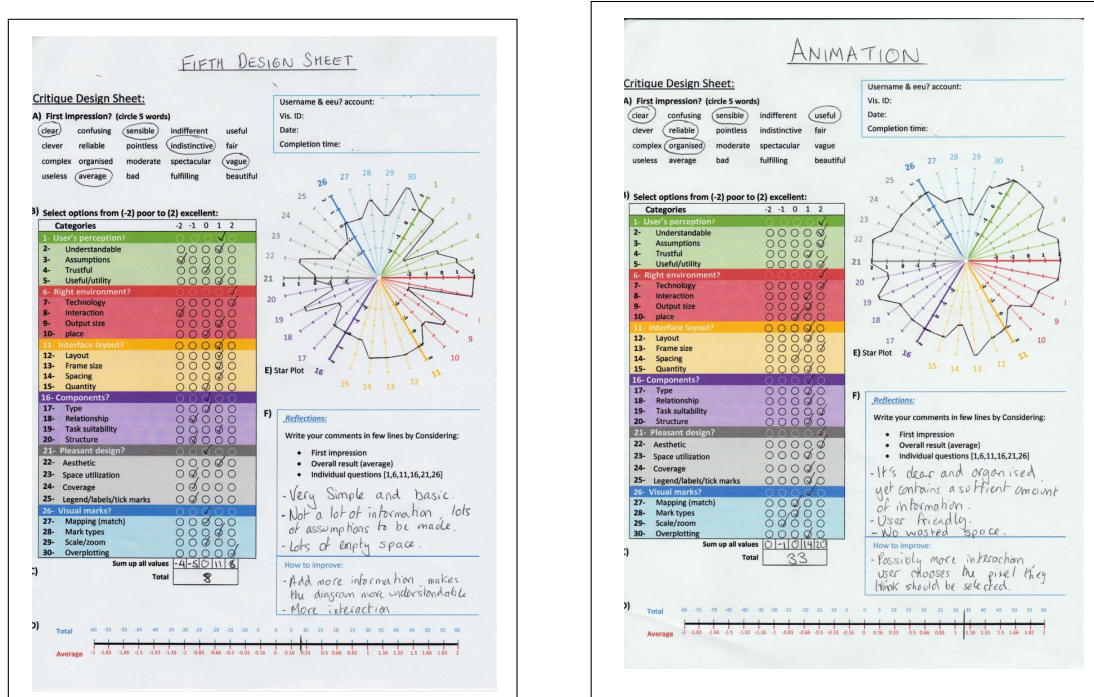 FIFTH DESIGN SHEET
Critique Design Sheet:
A) First impression? (circle 5 words)
clear confusing sensible indifferent useful
clever reliable pointless indistinctive fair
complex organised moderate spectacular vague
useless average bad fulfilling beautiful
Username & eeu? account:
Vis. ID:
Date:
Completion time:
B) Select options from (-2) poor to (2) excellent:
Categories -2 -1 0 1 2
1- User's perception?
2- Understandable
3- Assumptions
4- Trustful
5- Useful/utility
6- Right environment?
7- Technology
8- Interaction
9- Output size
10- place
11- Interface layout?
12- Layout
13- Frame size
14- Spacing
15- Quantity
16- Components?
17- Type
18- Relationship
19- Task suitability
20- Structure
21- Pleasant design?
22- Aesthetic
23- Space utilization
24- Coverage
25- Legend/labels/tick marks
26- Visual marks?
27- Mapping (match)
28- Mark types
29- Scale/zoom
30- Overplotting
Sum up all values -4 -5 0 11 6
C)
Total 8
26 27 28 29 30
1
25
24
23
22
21
20
19
18
17
16
15 14 13 12 11
10
9
E) Star Plot
F)
Reflections:
Write your comments in few lines by Considering:
• First impression
• Overall result (average)
• Individual questions [1,6,11,16,21,26]
- Very Simple and basic.
- Not a lot of information, lots
of assumptions to be made.
- Lots of empty space.
How to improve:
- Add more information, makes
the diagram more understandable.
- More interaction.
D)
Total -60 -55 -50 -45 -40 -35 -30 -25 -20 -15 -10 -5 0 5 10 15 20 25 30 35 40 45 50 55 60
Average -2 -1.83 -1.66 -1.5 -1.33 -1.16 -1 -0.83 -0.66 -0.5 -0.33 -0.16 0 0.16 0.33 0.5 0.66 0.83 1 1.16 1.33 1.5 1.66 1.83 2
ANIMATION
Critique Design Sheet:
A) First impression? (circle 5 words)
clear confusing sensible indifferent useful
clever reliable pointless indistinctive fair
complex organised moderate spectacular vague
useless average bad fulfilling beautiful
Username & eeu? account:
Vis. ID:
Date:
Completion time:
B) Select options from (-2) poor to (2) excellent:
Categories -2 -1 0 1 2
1- User's perception?
2- Understandable
3- Assumptions
4- Trustful
5- Useful/utility
6- Right environment?
7- Technology
8- Interaction
9- Output size
10- place
11- Interface layout?
12- Layout
13- Frame size
14- Spacing
15- Quantity
16- Components?
17- Type
18- Relationship
19- Task suitability
20- Structure
21- Pleasant design?
22- Aesthetic
23- Space utilization
24- Coverage
25- Legend/labels/tick marks
26- Visual marks?
27- Mapping (match)
28- Mark types
29- Scale/zoom
30- Overplotting
Sum up all values 0 -1 0 14 20
Total 33
26 27 28 29 30
1
2
3
4
25
24
23
22
21
20
19
18
17
16
15 14 13 12 11
10
9
E) Star Plot
F)
Reflections:
Write your comments in few lines by Considering:
• First impression
• Overall result (average)
• Individual questions [1,6,11,16,21,26]
- It's clear and organised,
yet contains a suffient amount
of information.
- User friendly.
- No wasted space.
How to improve:
- Possibly more interaction,
user chooses the pixel they
think should be selected.
Total -60 -55 -50 -45 -40 -35 -30 -25 -20 -15 -10 -5 0 5 10 15 20 25 30 35 40 45 50 55 60
Average -2 -1.83 -1.66 -1.5 -1.33 -1.16 -1 -0.83 -0.66 -0.5 -0.33 -0.16 0 0.16 0.33 0.5 0.66 0.83 1 1.16 1.33 1.5 1.66 1.83 2